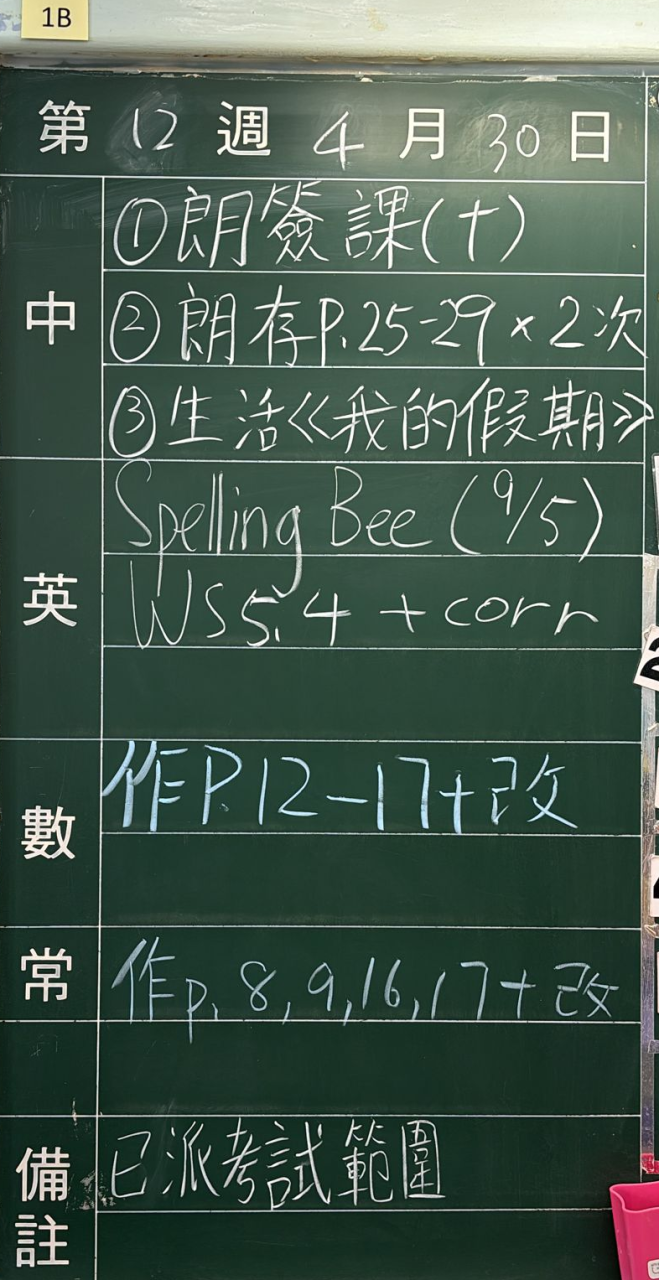 1B
第 12 週 4 月 30 日
中
①朗簽課(十)
②朗存P.25-29×2次
③生活《我的假期》
英
Spelling Bee (9/5)
WS 5.4 + corr
數
作P.12-17+改
常
作p.8,9,16,17+改
備註
已派考試範圍